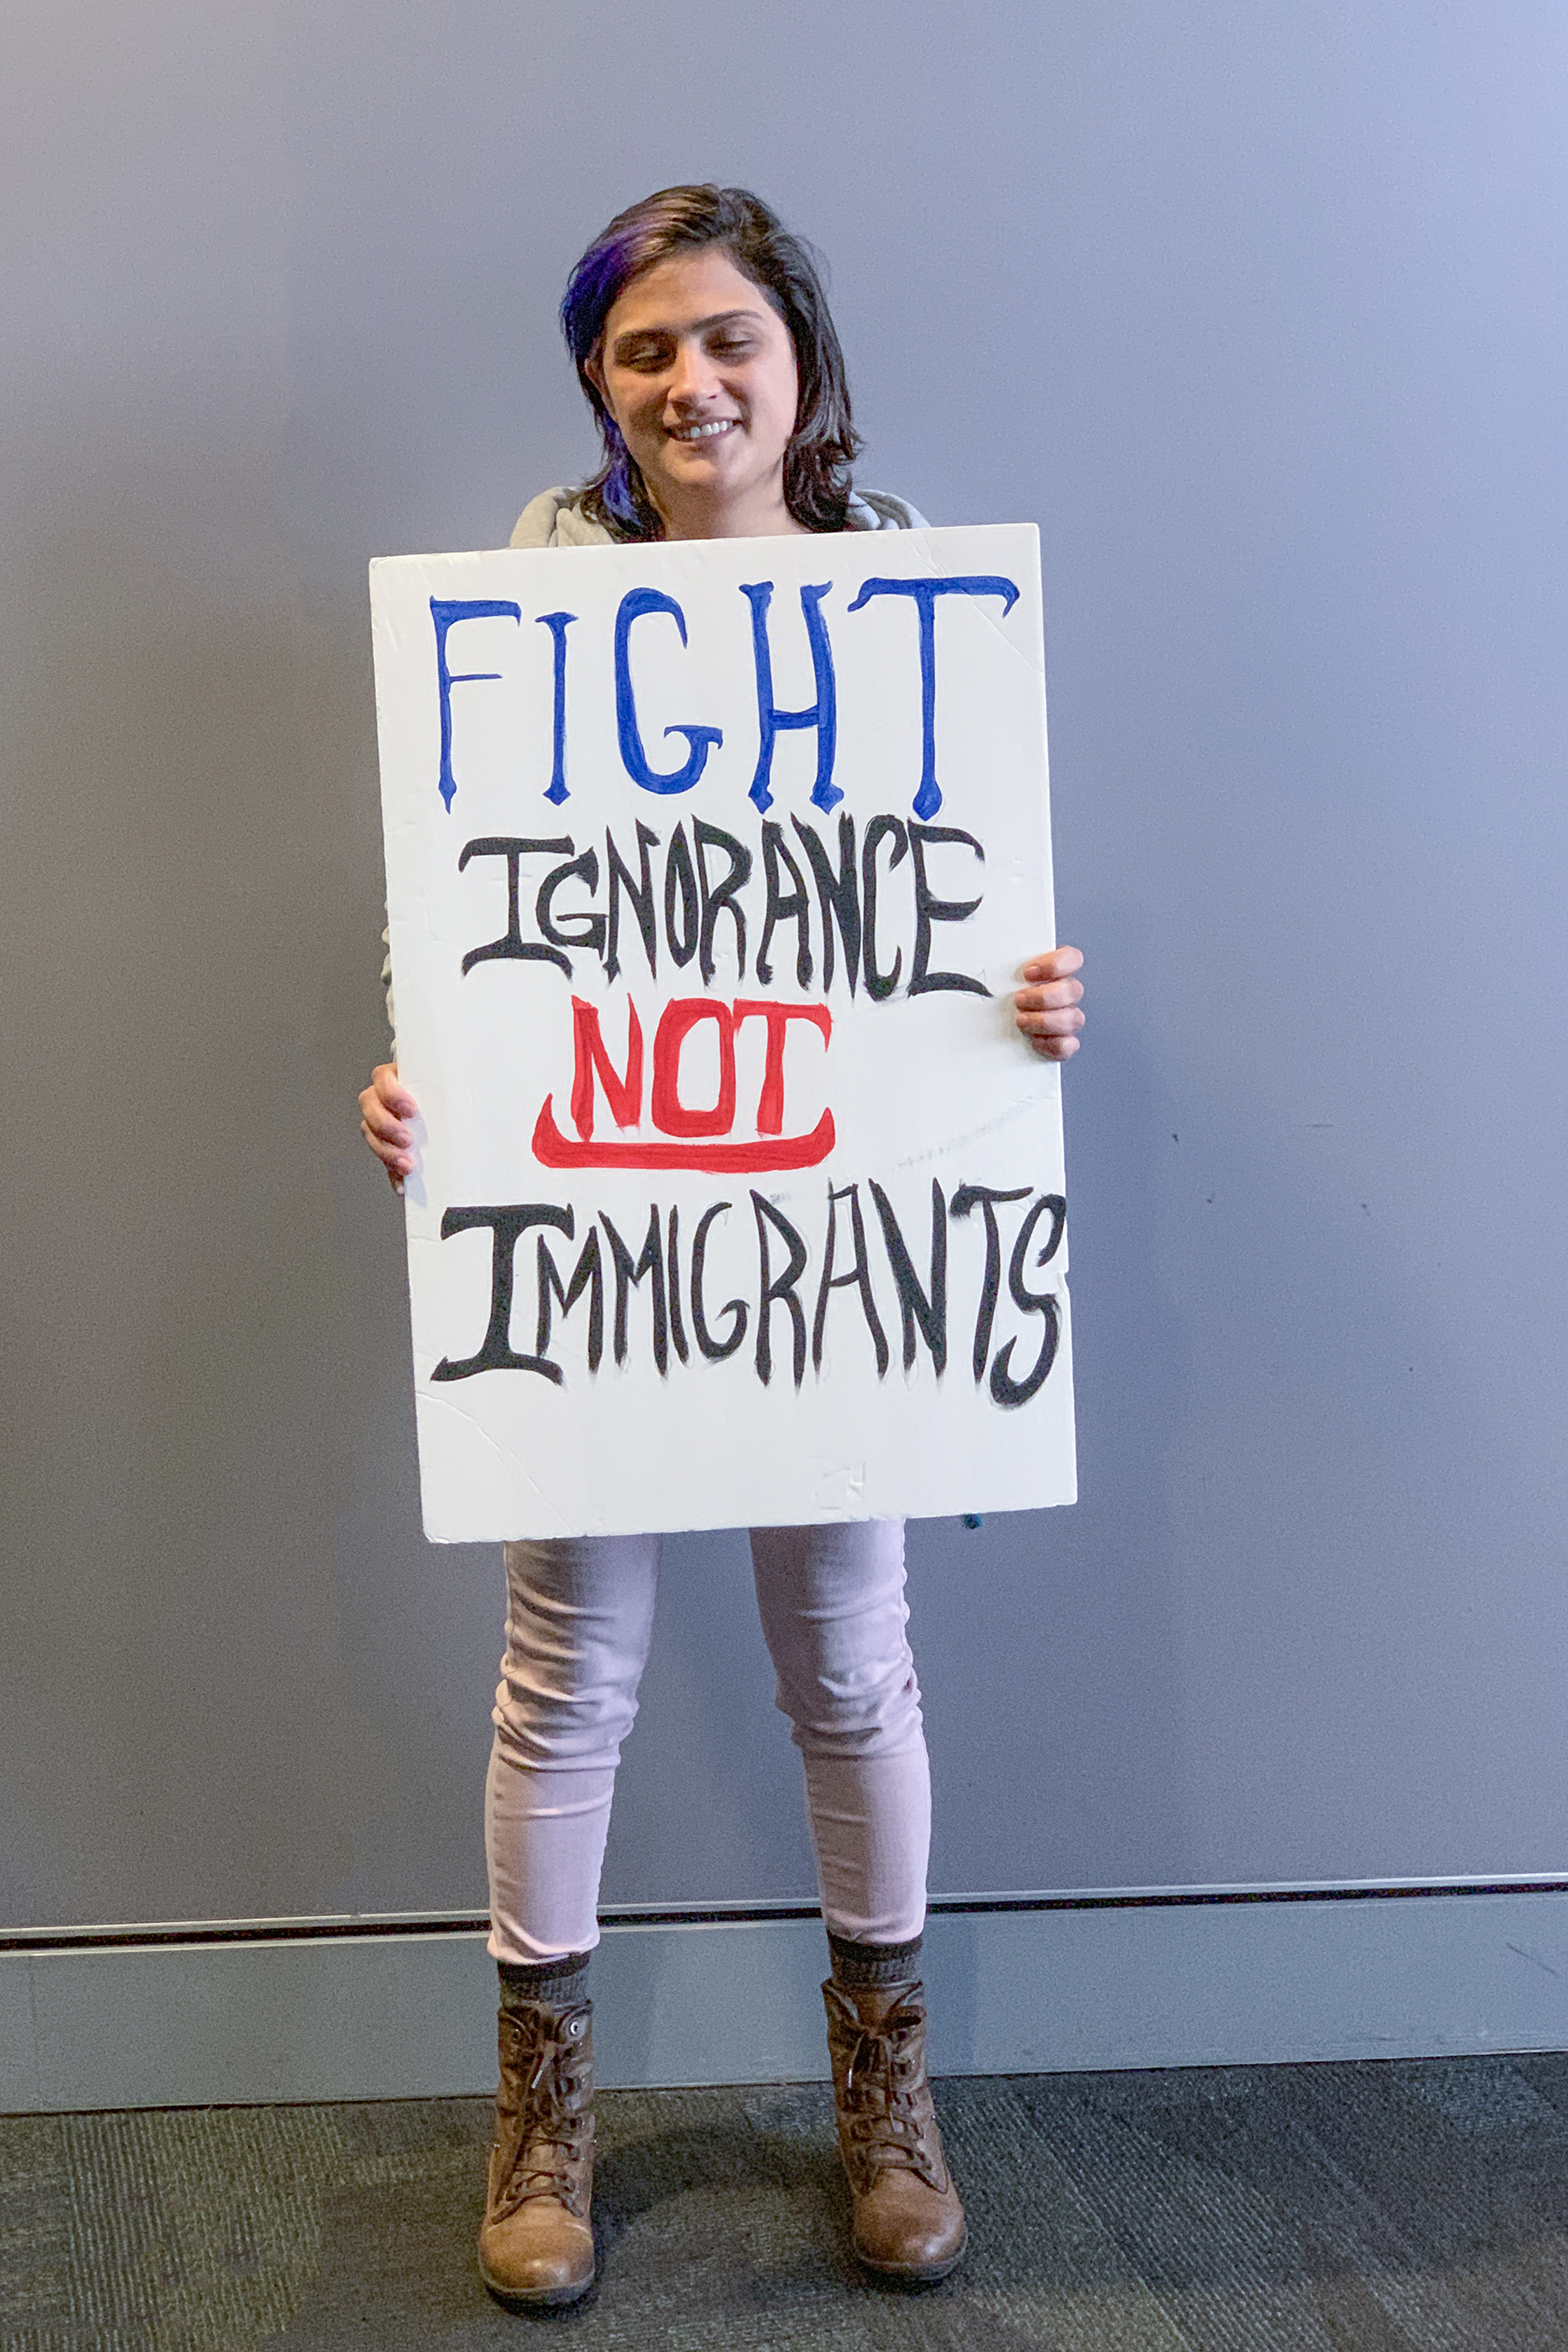 FIGHT
IGNORANCE
NOT
IMMIGRANTS